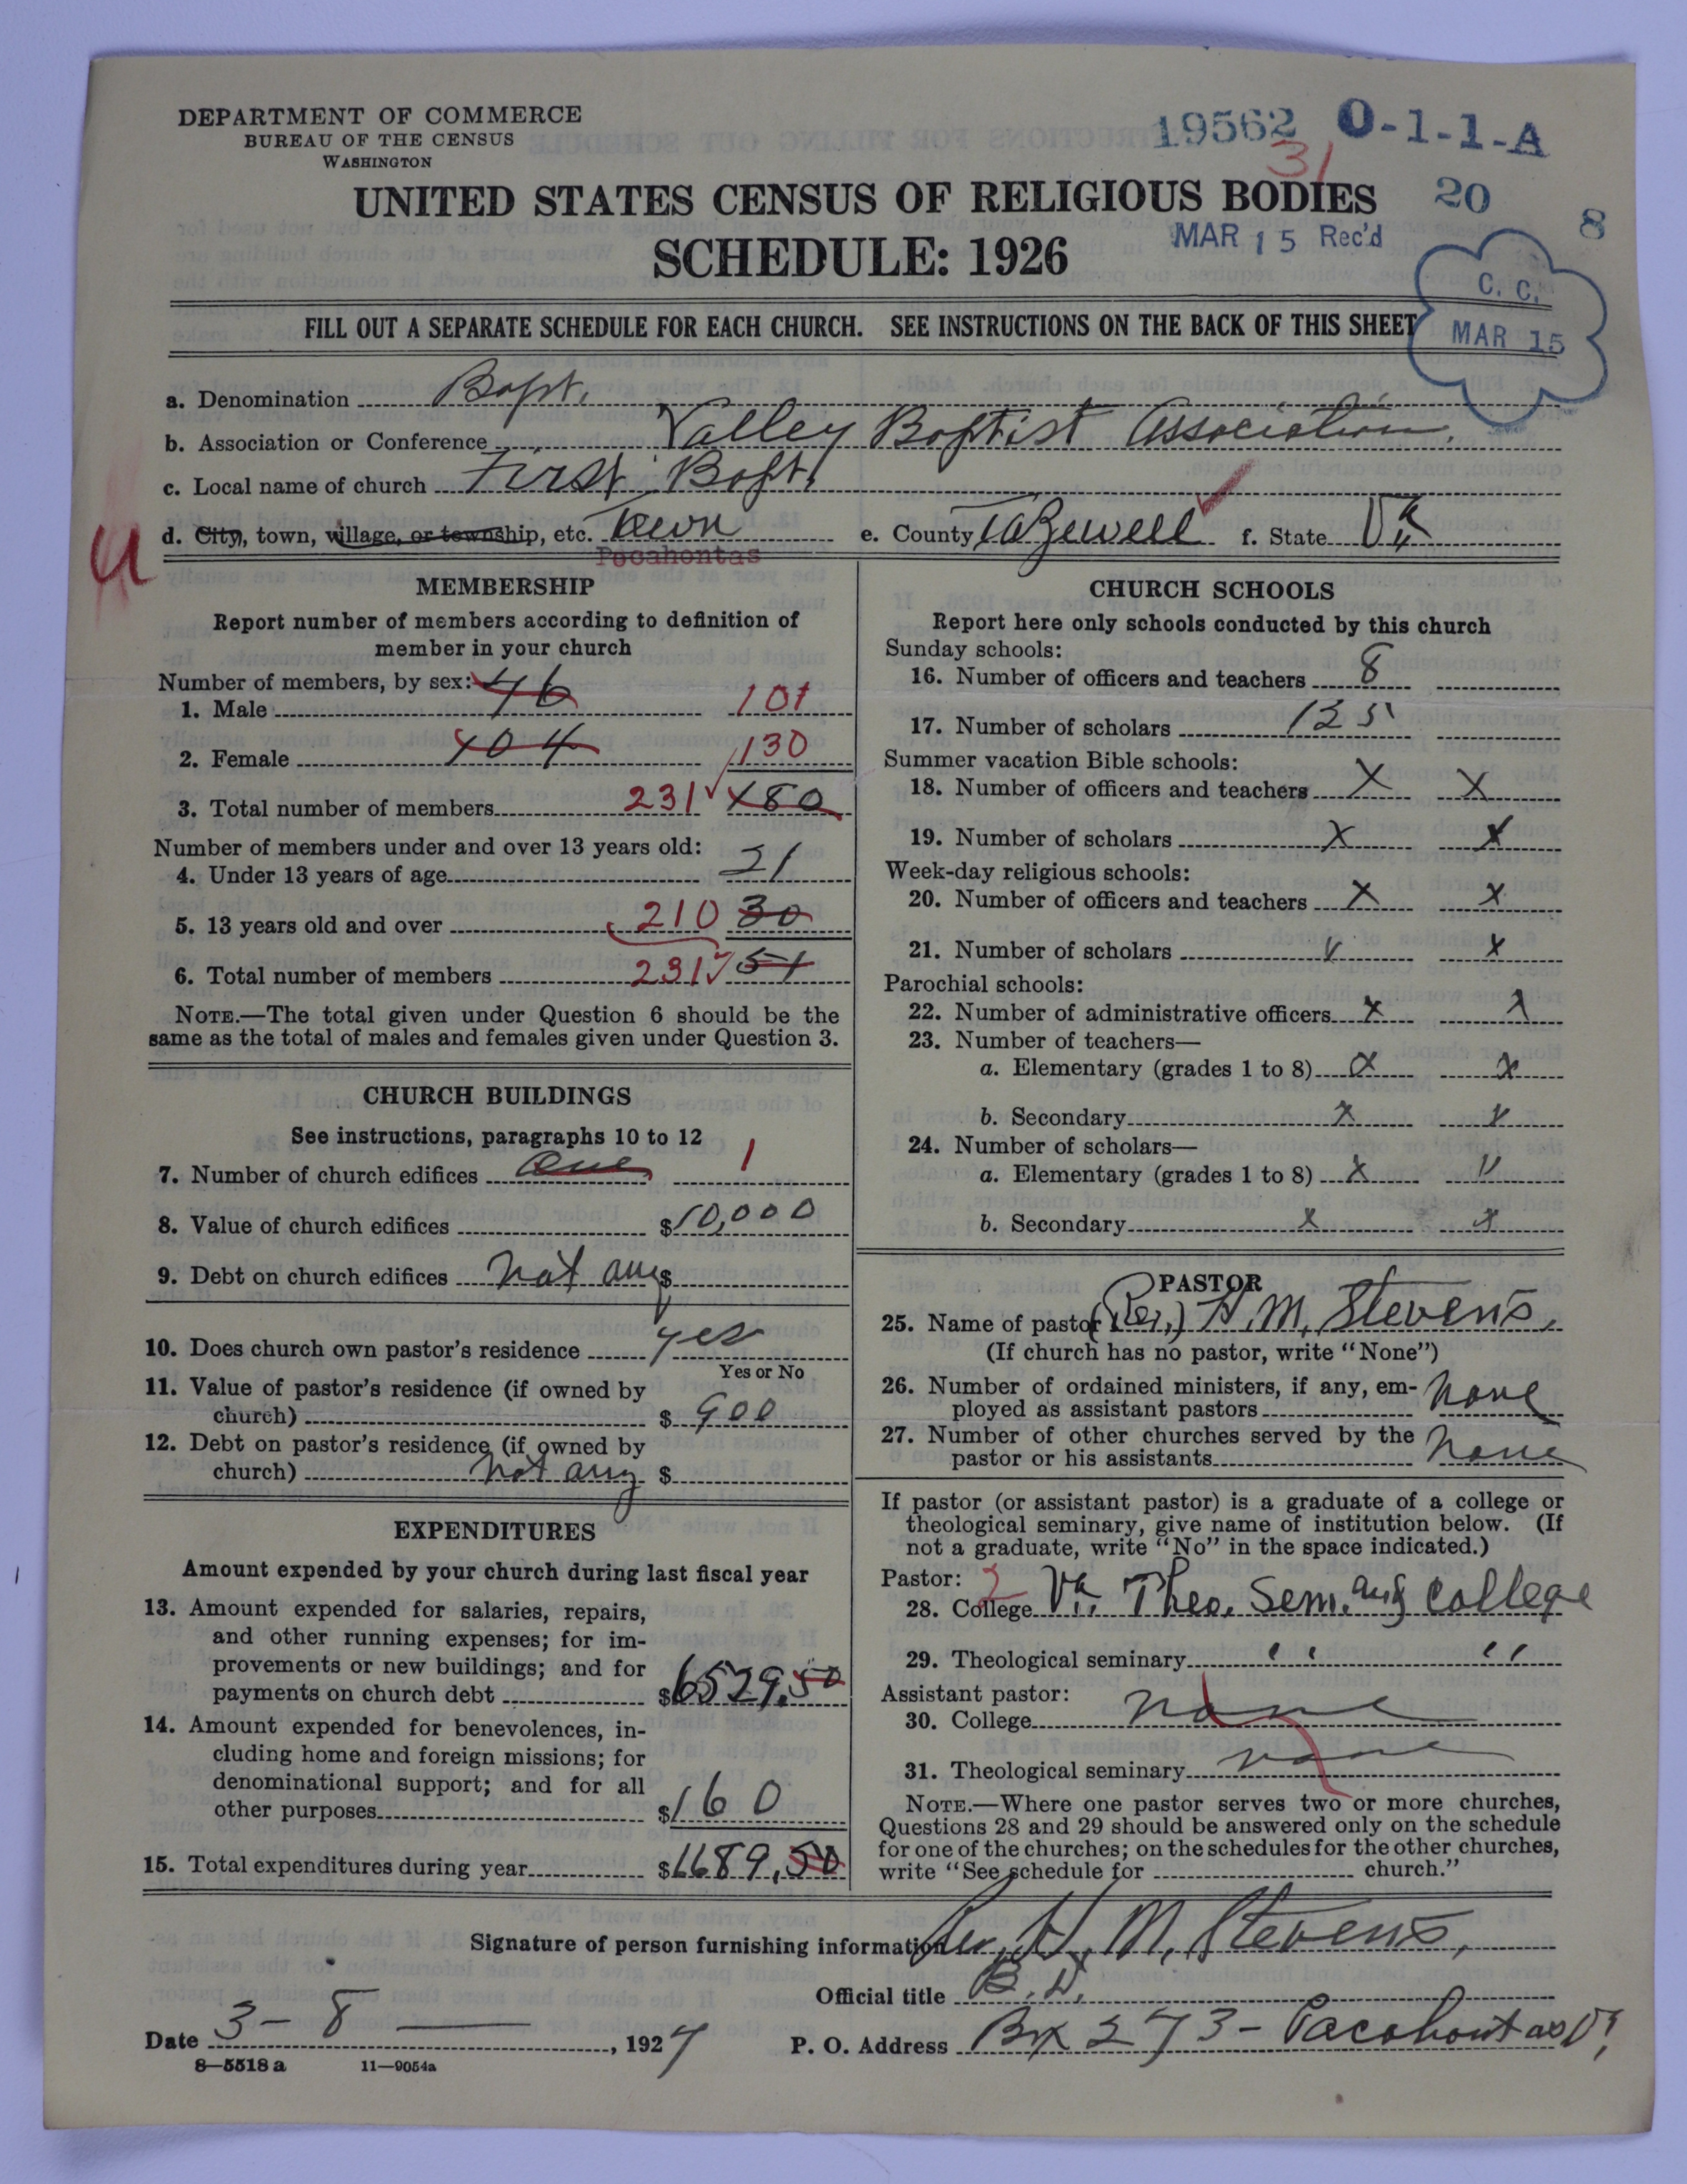 DEPARTMENT OF COMMERCE
BUREAU OF THE CENSUS
WASHINGTON
19562 O-1-1-A
31
UNITED STATES CENSUS OF RELIGIOUS BODIES
20
8
MAR 15 Rec'd
SCHEDULE: 1926
C. C.
MAR 15
FILL OUT A SEPARATE SCHEDULE FOR EACH CHURCH. SEE INSTRUCTIONS ON THE BACK OF THIS SHEET
a. Denomination Bapt.
b. Association or Conference Valley Baptist Association.
c. Local name of church First Bapt.
d. City, town, village, or township, etc. Town
Pocahontas
e. County Tazewell f. State Va.
MEMBERSHIP
Report number of members according to definition of
member in your church
Number of members, by sex: 46
1. Male 101
2. Female 104 130
3. Total number of members 231 180
Number of members under and over 13 years old:
4. Under 13 years of age 21
5. 13 years old and over 210 30
6. Total number of members 231 51
NOTE.—The total given under Question 6 should be the
same as the total of males and females given under Question 3.
CHURCH BUILDINGS
See instructions, paragraphs 10 to 12
7. Number of church edifices One 1
8. Value of church edifices $10,000
9. Debt on church edifices not any $
10. Does church own pastor's residence yes
Yes or No
11. Value of pastor's residence (if owned by
church) $ 900
12. Debt on pastor's residence (if owned by
church) not any $
EXPENDITURES
Amount expended by your church during last fiscal year
13. Amount expended for salaries, repairs,
and other running expenses; for im-
provements or new buildings; and for
payments on church debt $6529.50
14. Amount expended for benevolences, in-
cluding home and foreign missions; for
denominational support; and for all
other purposes $160
15. Total expenditures during year $6689.50
CHURCH SCHOOLS
Report here only schools conducted by this church
Sunday schools:
16. Number of officers and teachers 8
17. Number of scholars 125
Summer vacation Bible schools:
18. Number of officers and teachers X X
19. Number of scholars X X
Week-day religious schools:
20. Number of officers and teachers X X
21. Number of scholars X X
Parochial schools:
22. Number of administrative officers X X
23. Number of teachers—
a. Elementary (grades 1 to 8) X X
b. Secondary X X
24. Number of scholars—
a. Elementary (grades 1 to 8) X X
b. Secondary X X
PASTOR
25. Name of pastor (Rev.) H. M. Stevens,
(If church has no pastor, write "None")
26. Number of ordained ministers, if any, em-
ployed as assistant pastors none
27. Number of other churches served by the
pastor or his assistants none
If pastor (or assistant pastor) is a graduate of a college or
theological seminary, give name of institution below. (If
not a graduate, write "No" in the space indicated.)
Pastor: 2
28. College Va. Theo. Sem. and College
29. Theological seminary " "
Assistant pastor:
30. College none
31. Theological seminary none
NOTE.—Where one pastor serves two or more churches,
Questions 28 and 29 should be answered only on the schedule
for one of the churches; on the schedules for the other churches,
write "See schedule for church."
Signature of person furnishing information Rev. H. M. Stevens,
Official title B. D.
Date 3 - 8 , 1927 P. O. Address Bx 273 - Pacohontas Va.
8—5518 a 11—9054a